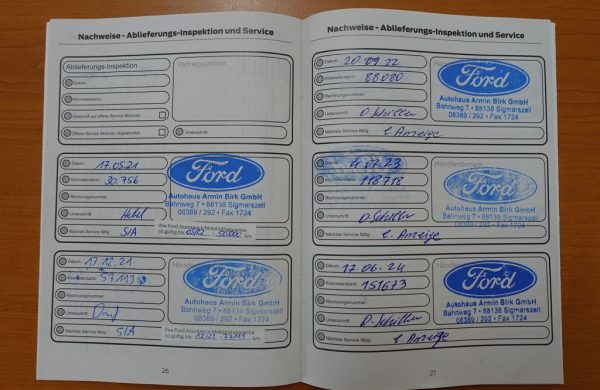 Nachweise - Ablieferungs-Inspektion und Service
Ablieferungs-Inspektion
Vertragspartner
Datum:
Kilometerstand:
Überprüft auf offene Service Aktionen:
Offene Service Aktionen abgearbeitet:
Unterschrift:
Datum: 17.05.21
Kilometerstand: 30.756
Rechnungsnummer:
Unterschrift:
Nächste Service fällig: S/A
Ford
Autohaus Armin Birk GmbH
Bahnweg 7 • 88138 Sigmarszell
08389 / 292 • Fax 1724
Ihre Ford Assistance Mobilitätsgarantie
ist gültig bis km
Datum: 17.12.21
Kilometerstand: 57.113
Rechnungsnummer:
Unterschrift:
Nächste Service fällig: S/A
Ford
Autohaus Armin Birk GmbH
Bahnweg 7 • 88138 Sigmarszell
08389 / 292 • Fax 1724
Ihre Ford Assistance Mobilitätsgarantie
ist gültig bis km
26
Nachweise - Ablieferungs-Inspektion und Service
Datum: 20.09.22
Kilometerstand: 88080
Rechnungsnummer:
Unterschrift: D. Schiller
Nächste Service fällig: l. Anzeige
Ford
Autohaus Armin Birk GmbH
Bahnweg 7 • 88138 Sigmarszell
08389 / 292 • Fax 1724
Datum: 4.07.23
Kilometerstand: 118718
Rechnungsnummer:
Unterschrift: D. Schiller
Nächste Service fällig: l. Anzeige
Händlerstempel
Ford
Autohaus Armin Birk GmbH
Bahnweg 7 • 88138 Sigmarszell
08389 / 292 • Fax 1724
Datum: 17.06.24
Kilometerstand: 151673
Rechnungsnummer:
Unterschrift: D. Schiller
Nächste Service fällig: l. Anzeige
Ford
Autohaus Armin Birk GmbH
Bahnweg 7 • 88138 Sigmarszell
08389 / 292 • Fax 1724
27